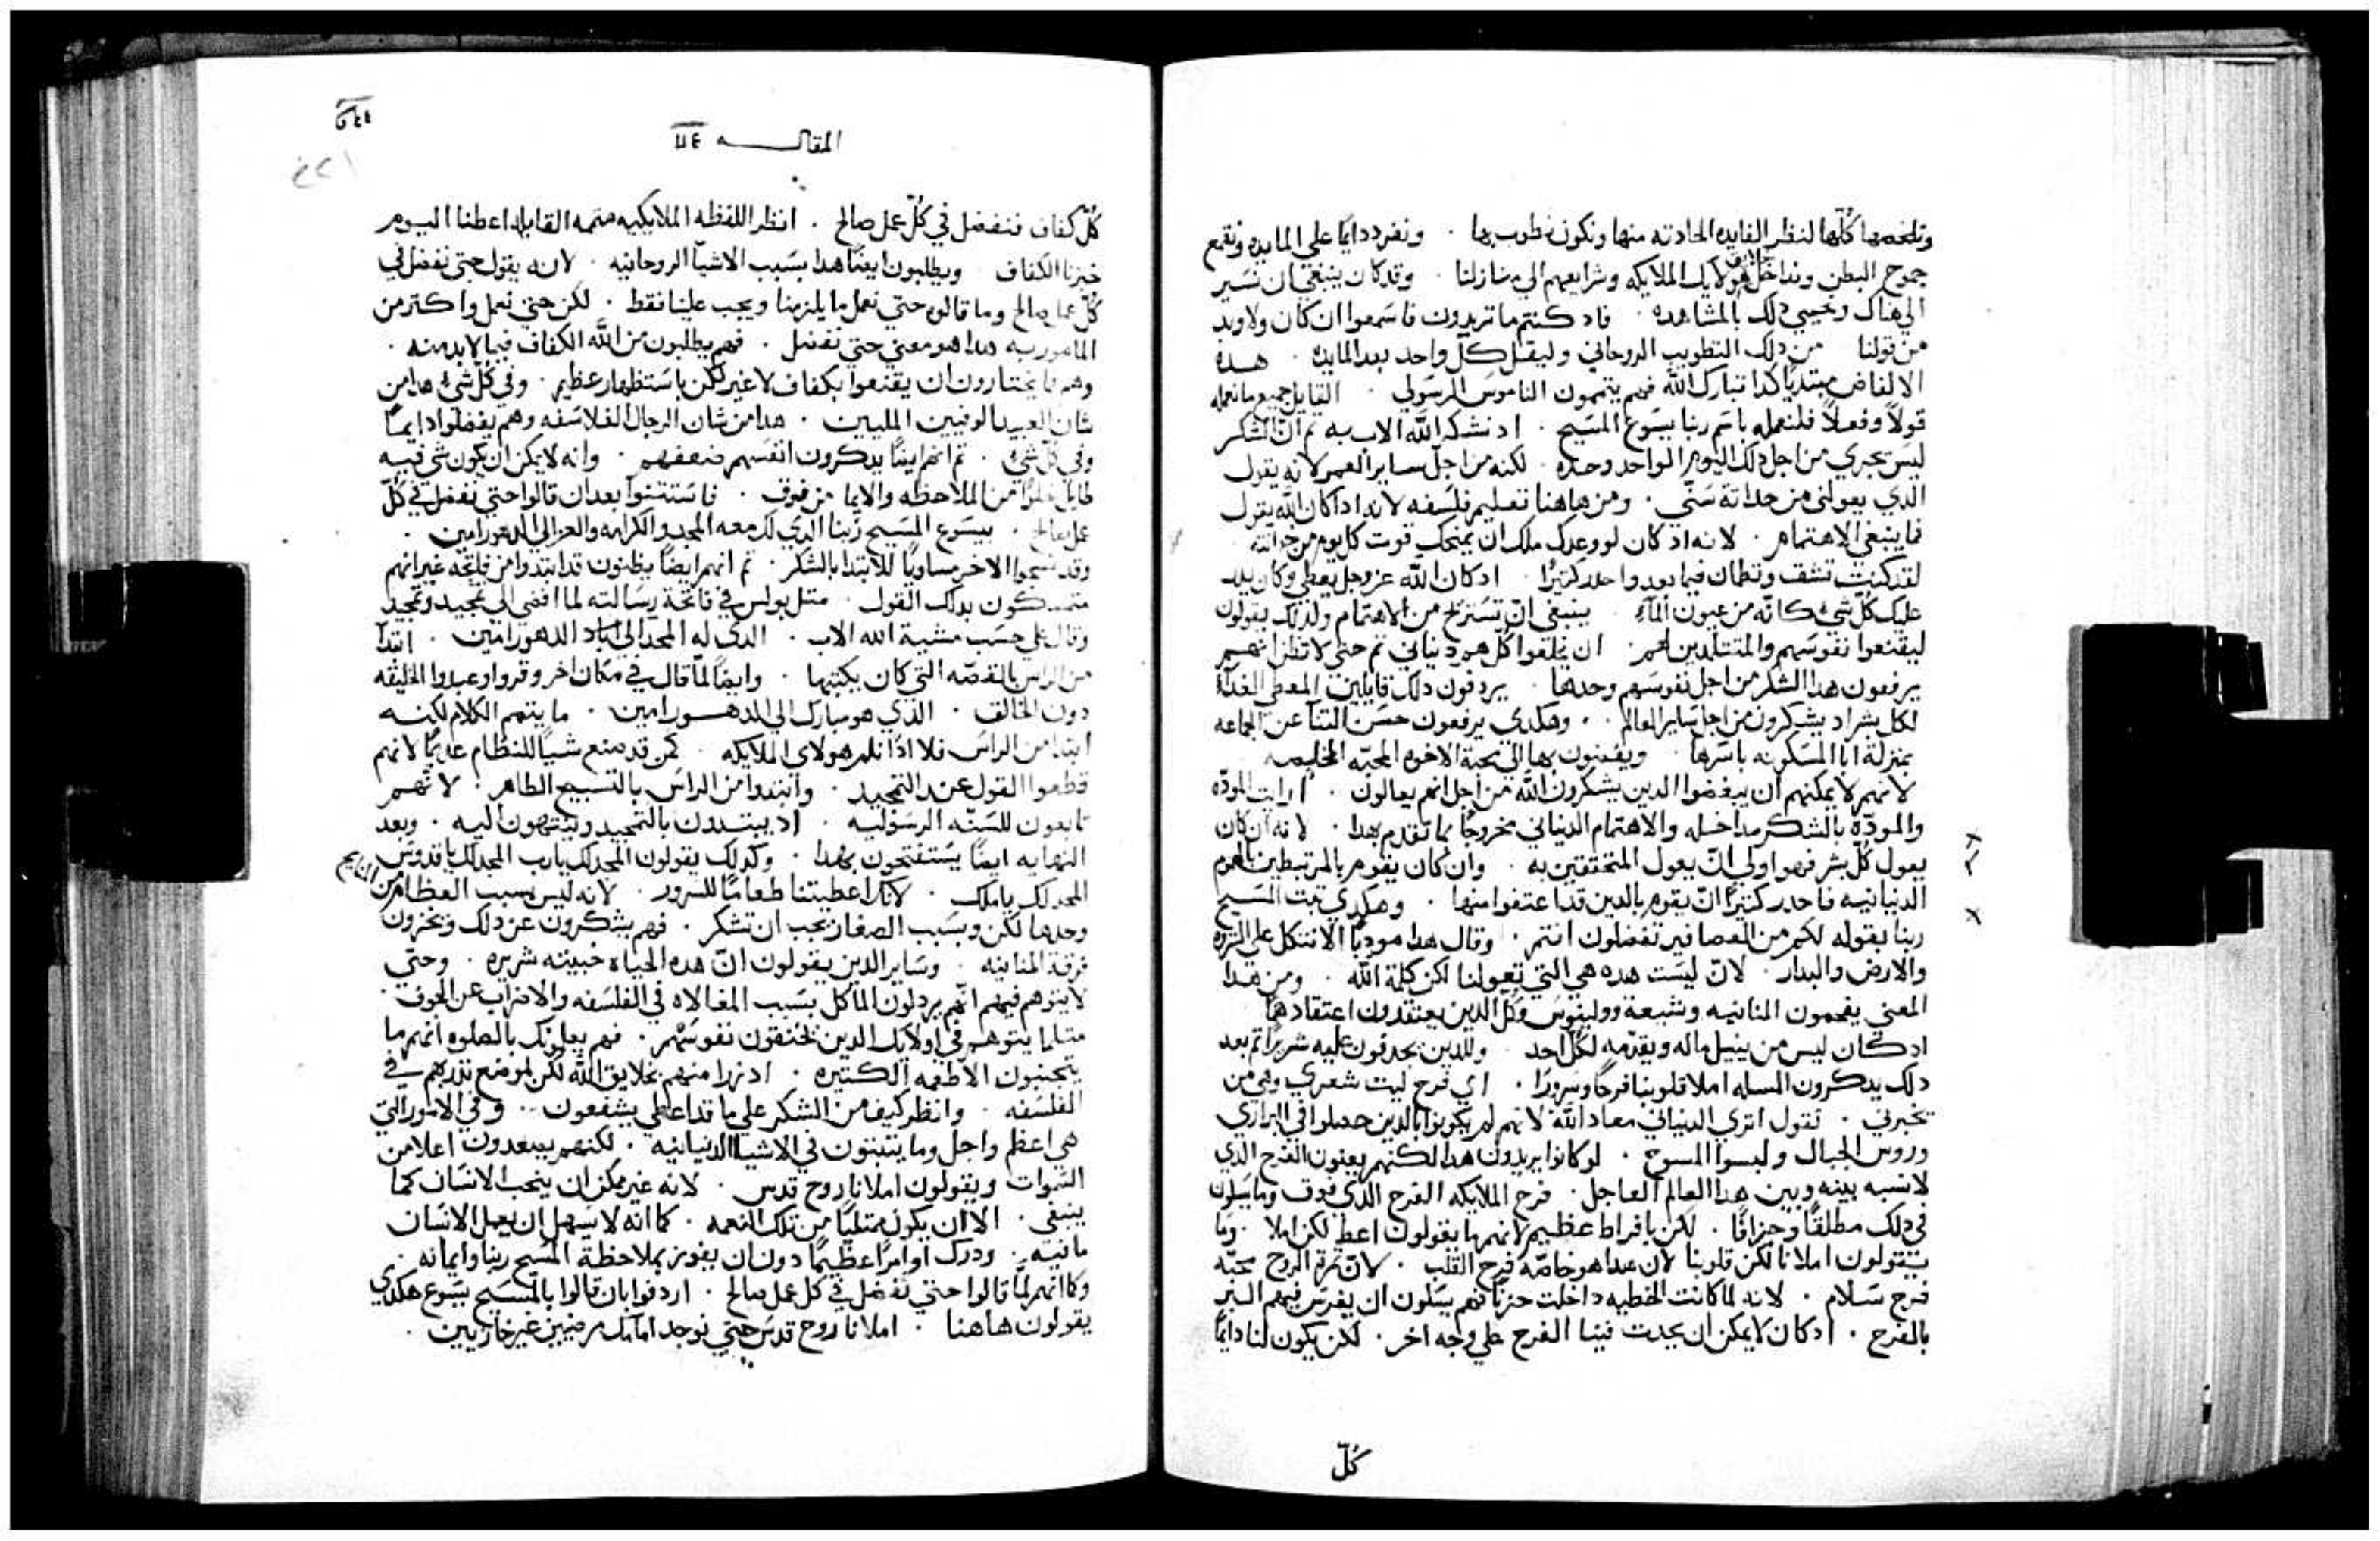 وتلخصها كلها لننظر الفايده الحادته منها ونكون نطوب بها . ونفرد دايمًا علي المايده ونقمع
جموح البطن ونداخل هولايك الملايكه وشرايعهم الي منازلنا . وقد كان ينبغي ان نسير
الي هناك ونجيي دلك بالمشاهده . فاد كنتم ما تريدون فاسمعوا ان كان ولا وبد
من قولنا من دلك التطويب الروحاني وليقل كل واحد بعد المايده . هده
الالفاض مبتديًا كدا تبارك الله فهم يتممون الناموس الرسولي . القايل جميع ما نعمله
قولاً وفعلاً فلنعمله باسم ربنا يسوع المسيح . اد نشكر الله الاب به تم ان الشكر
ليس يجري من اجل دلك اليوم الواحد وحده . لكنه من اجل ساير العمر لانه يقول
الدي يعولني من حداتة سني . ومن هاهنا تعليم فلسفه لانه ادا كان الله يقول
فما ينبغي الاهتمام . لانه اد كان لو وعدك ملك ان يمنحك قوت كل يوم من خزانته
لقد كنت تتق وتطمان فيما بعد واحدر كتيرًا . اد كان الله عز وجل يعطي وكان يلد
عليك كل شي كانه من عيون المآء . ينبغي ان تستريح من الاهتمام ولدلك يقولون
ليقنعوا نفوسهم والمتتلمدين لهم . ان يخلعوا كل هم دنياني تم حتي لا تظن انهم
يرفعون هدا الشكر من اجل نفوسهم وحدها . يردفون دلك قايلين المعطي الغداء
لكل بشر اد يشكرون من اجل ساير العالم . وهكدي يرفعون حسن التنآ عن الجماعه
بمنزلة ابا المسكونه باسرها . ويفضون بها الي محبة الاخوه المحبه الخليصه
لانهم لا يمكنهم ان يبغضوا الدين يشكرون الله من اجل انهم يعالون . ارايت المودّه
والمودّه بالشكر مداخله والاهتمام الدنياني مخروجًا بما تقدم هدا . لانه ان كان
يعول كل بشر فهو اولي ان يعول المتحققين به . وان كان يقوم بالمرتبطين بالهموم
الدنيانيه فاحدر كتيرًا ان يقوم بالدين قد اعتفوا منها . وهكدي تبت المسيح
ربنا بقوله لكم من العصافير تفضلون انتم . وقال هدا مودبًا الا نتكل علي التروه
والارض والبدار . لان ليست هده هي التي تعولنا لكن كلمة الله . ومن هدا
المعني يفحمون المنانيه وشيعة وولينوس وكل الدين يعتقدون اعتقادهما
اد كان ليس من ينيل ماله ويقدمه لكل احد . وللدين يجدفون عليه شريرًا تم بعد
دلك يدكرون المسله املا قلوبنا فرحًا وسرورًا . اي فرح ليت شعري وهي من
تخبرني . تقول اتري الدنياني معاد الله لانهم لم يكونوا بالدين حصلوا في البراري
وروس الجبال ولبسوا المسوح . لو كانوا يريدون هدا لكنهم يعنون الفرح الدي
لا نسبه بينه وبين هدا العالم العاجل . فرح الملايكه الفرح الدي فوق وما يسلون
في دلك مطلقًا وجزافًا . لكن بافراط عظيم لانهم ما يقولون اعط لكن املا . وما
يقولون املانا لكن قلوبنا لان هدا هو خاصه فرح القلب . لان تمرة الروح محبه
فرح سلام . لانه لما كانت الخطيه داخلت حزنًا فهم يسلون ان يغرس فيهم البر
بالفرح . اد كان لا يمكن ان يحدت فينا الفرح علي وجه اخر . لكن يكون لنا دايمًا
كلّ
المقاله ٧٤
كل كفاف فنفضل في كل عمل صالح . انظر اللفظه الملايكيه متممه القايله اعطنا اليوم
خبزنا الكفاف . ويطلبون ايضًا هدا بسبب الاشيا الروحانيه . لانه يقول حتي نفضل في
كل عمل صالح وما قالوا حتي نعمل ما يلزمنا ويجب علينا فقط . لكن حتي نعمل واكتر من
المامور به هدا هو معني حتي نفضل . فهم يطلبون من الله الكفاف فيما لا بد منه .
وهم ما يختارون ان يقنعوا بكفاف لا غير لكن باستظهار عظيم . وفي كل شي هدا من
شان العبيد الوفيين المليين . هدا من شان الرجال الفلاسفه وهم يفضلوا دايمًا
وفي كل شي . تم انهم ايضًا يدكرون انفسهم ضعفهم . وانه لا يمكن ان يكون شي فيه
طايل خلوًا من الملاحظه والايما من فوق . فاستتنوا بعد ان قالوا حتي نفضل في كل
عمل صالح . بيسوع المسيح ربنا الدي لك معه المجد والكرامه والعز الي الدهور امين .
وقد نسجوا الاخر مساويًا للابتدا بالشكر . تم انهم ايضًا يظنون قد ابتدوا من فاتحه غير انهم
متمسكون بدلك القول . متل بولس في فاتحة رسالته لما افضي الي تمجيد وتمجيد
وقال علي حسب مشية الله الاب . الدي له المجد الي اباد الدهور امين . ابتدا
من الراس بالقصّه التي كان يكتبها . وايضًا لمّا قال في مكان اخر وقروا وعبدوا الخليقه
دون الخالق . الذي هو مبارك الي الدهور امين . ما يتمم الكلام لكنه
ابتدا من الراس فلا ادًا نلم هولاي الملايكه . كمن قد صنع شيًا للنظام عديمًا لانهم
قطعوا القول عند التمجيد . وابتدوا من الراس بالتسبيح الطاهر . لانهم
تابعون للسنّه الرسوليه . اد يبتدون بالتمجيد وينتهون اليه . وبعد
النهايه ايضًا يستفتحون بهدا . وكدلك يقولون المجد لك يارب المجد لك يا قدوس
المجد لك ياملك . لانك اعطيتنا طعامًا للسرور . لانه ليس بسبب العظام من المنايح
وحدها لكن وبسبب الصغار يجب ان تشكر . فهم يشكرون عن دلك ويخزون
فرقة المنانيه . وساير الدين يقولون ان هده الحياه خبيته شريره . وحتّي
لا يتوهم فيهم انهم يردلون الماكل بسبب المغالاه في الفلسفه والاضراب عن الجوف .
متلما يتوهم في اولايك الدين يخنقون نفوسهم . فهم يعلمونك بالصلوه انهم ما
يتجنبون الاطعمه الكتيره . ادرا منهم بخلايق الله لكن لموضع تدربهم في
الفلسفه . وانظر كيف من الشكر علي ما قد اعطي يشفعون . وفي الامور التي
هي اعظم واجل وما يتبتون في الاشيا الدنيانيه . لكنهم يصعدون اعلا من
السموات ويقولون املانا روح قدس . لانه غير ممكن ان ينجب الانسان كما
ينبغي . الا ان يكون ممتليًا من تلك النعمه . كما انه لا يسهل ان يعمل الانسان
ما نيته . ودرك اوامرًا عظيمًا دون ان يفوز بملاحظة المسيح ربنا وايمانه .
وكما انهم لما قالوا حتي نفضل في كل عمل صالح . اردفوا بان قالوا بالمسيح يسوع هكدي
يقولون هاهنا . املانا روح قدس حتي نوجد امامك مرضيين غير خازيين .